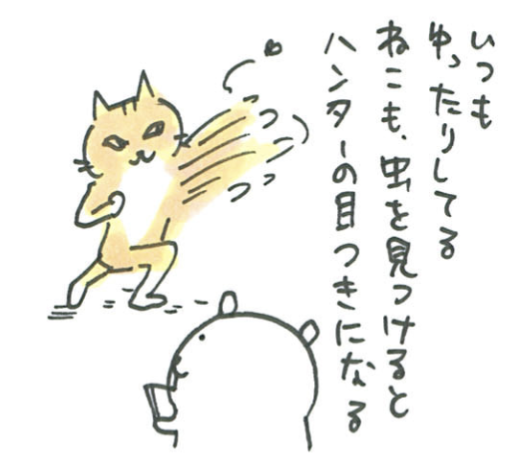 いつも
ゆったりしてる
ねこも、虫を見つけると
ハンターの目つきになる